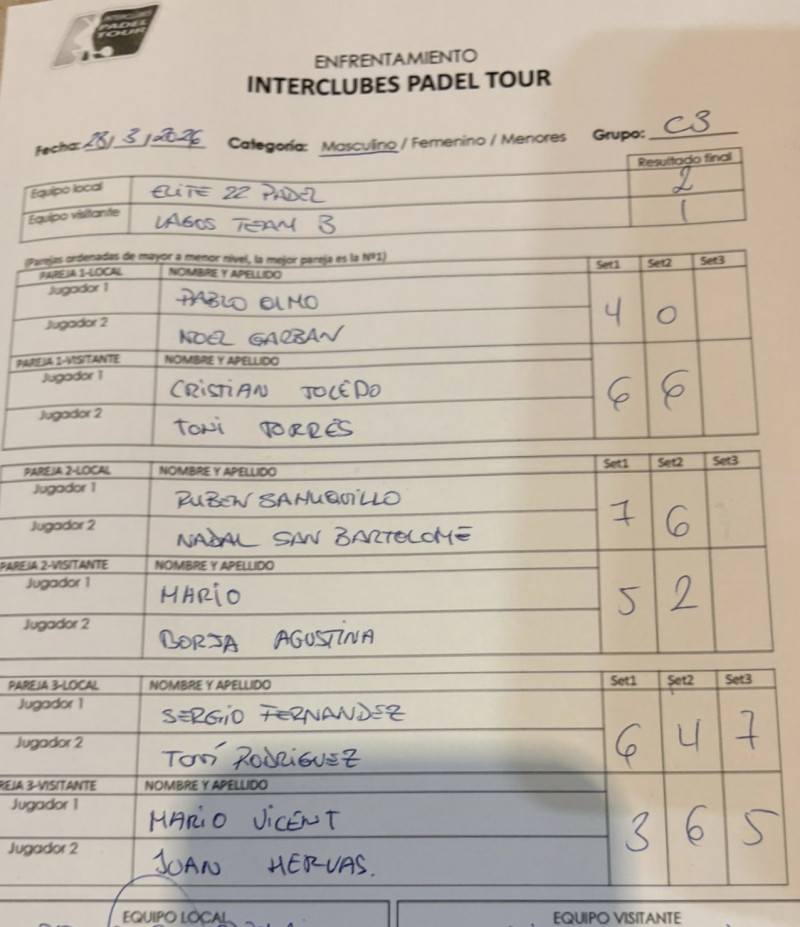 INTERCLUBES
PADEL
TOUR
ENFRENTAMIENTO
INTERCLUBES PADEL TOUR
Fecha: 28/3/2026 Categoría: Masculino / Femenino / Menores Grupo: C3
Resultado final
Equipo local ELITE 22 PADEL 2
Equipo visitante LAGOS TEAM B 1
(Parejas ordenadas de mayor a menor nivel, la mejor pareja es la Nº1)
PAREJA 1-LOCAL NOMBRE Y APELLIDO Set1 Set2 Set3
Jugador 1 PABLO OLMO
4 0
Jugador 2 NOEL GARBAN
PAREJA 1-VISITANTE NOMBRE Y APELLIDO
Jugador 1 CRISTIAN TOLEDO
6 6
Jugador 2 TONI TORRES
PAREJA 2-LOCAL NOMBRE Y APELLIDO Set1 Set2 Set3
Jugador 1 RUBEN SAHUQUILLO
7 6
Jugador 2 NADAL SAN BARTOLOME
PAREJA 2-VISITANTE NOMBRE Y APELLIDO
Jugador 1 MARIO
5 2
Jugador 2 BORJA AGUSTINA
PAREJA 3-LOCAL NOMBRE Y APELLIDO Set1 Set2 Set3
Jugador 1 SERGIO FERNANDEZ
6 4 7
Jugador 2 TONI RODRIGUEZ
REJA 3-VISITANTE NOMBRE Y APELLIDO
Jugador 1 MARIO VICENT
3 6 5
Jugador 2 JUAN HERVAS.
EQUIPO LOCAL EQUIPO VISITANTE